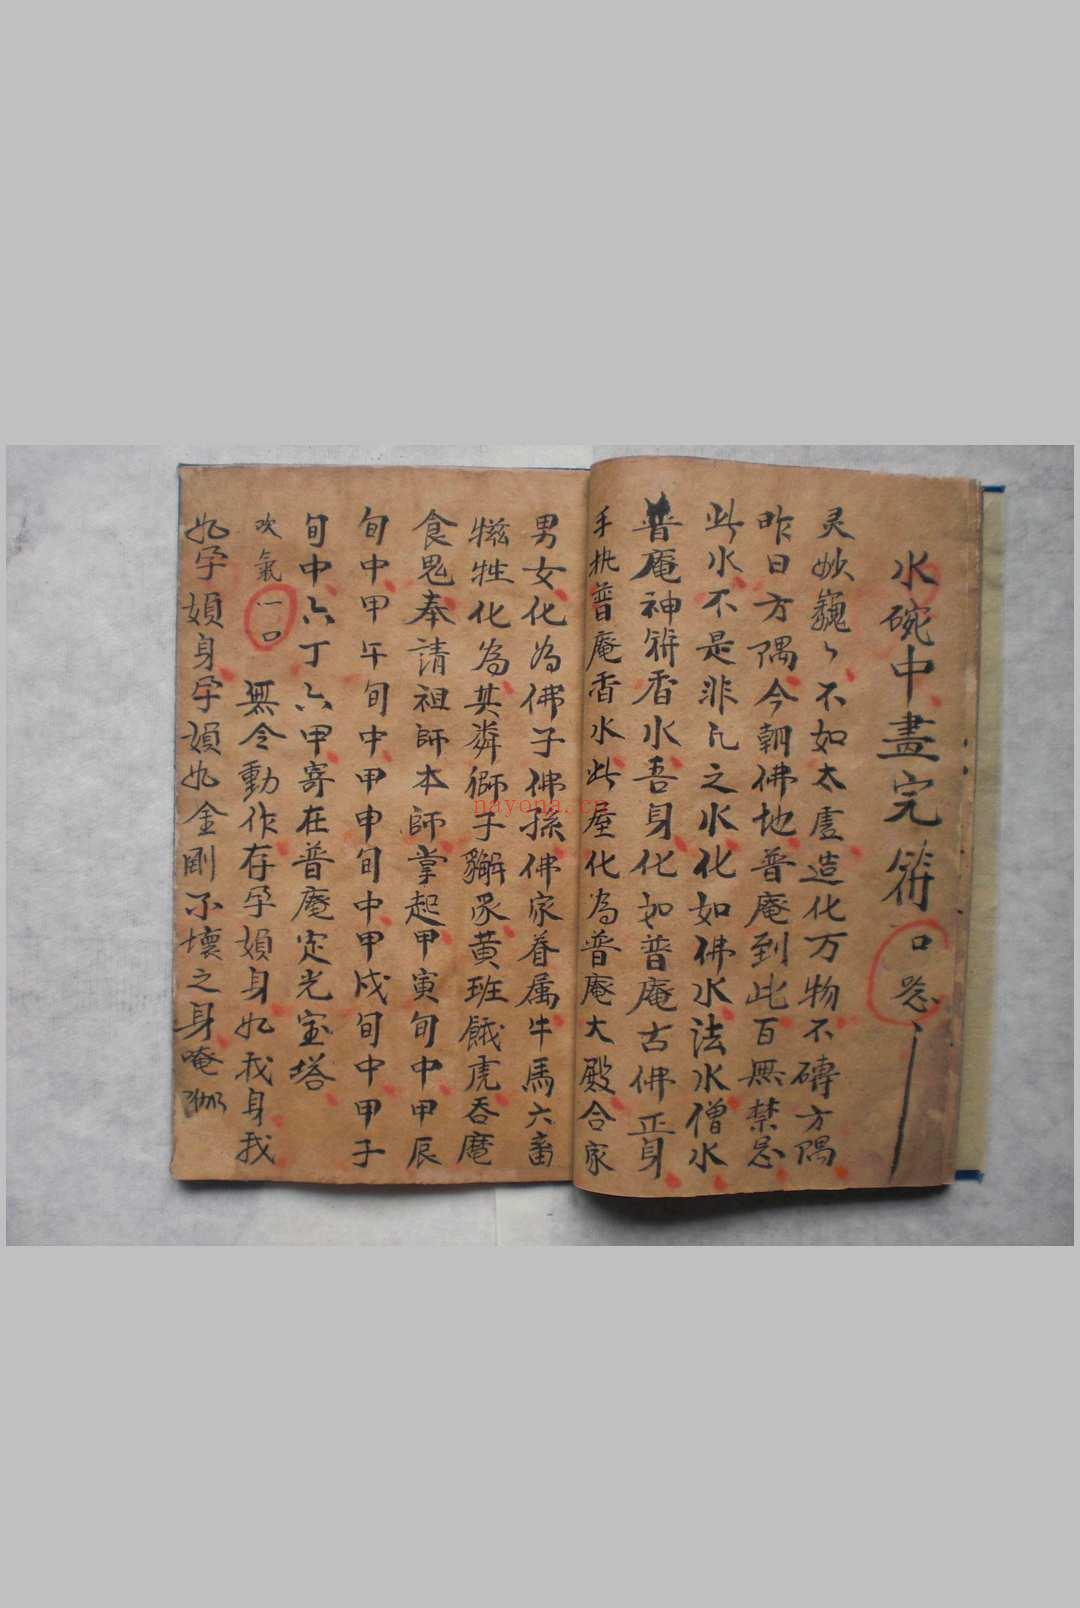 水碗中畫完符口忌
灵妙巍々不如太虛造化万物不礙方隅
昨日方隅今朝佛地普庵到此百無禁忌
此水不是非凡之水化如佛水法水僧水
普庵神符香水吾身化如普庵古佛正身
手执普庵香水此屋化為普庵大殿合家
男女化為佛子佛孫佛家眷属牛馬六畜
牲化為其獅子象黃班餓虎吞魔
食鬼奉請祖師本師掌起甲寅旬中甲辰
旬中甲午旬中甲申旬中甲戌旬中甲子
旬中六丁六甲寄在普庵定光宝塔
吹氣一口
無令動作存孕媍身如我身我
如孕媍身孕媍如金剛不壞之身唵
nayona.cn